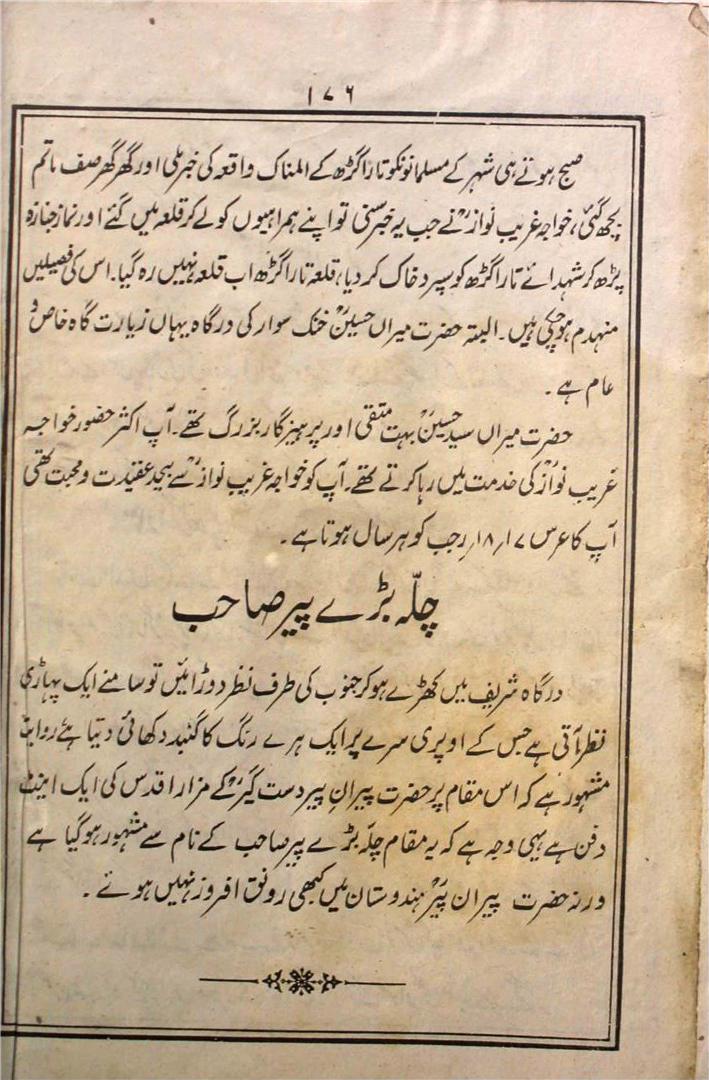 ۱۷۶
صبح ہوتے ہی شہر کے مسلمانونکو تارا گڑھ کے المناک واقعہ کی خبر ملی اور گھر گھر صف ماتم
بچھ گئی، خواجہ غریب نوازؒ نے جب یہ خبر سنی تو اپنے ہمراہیوں کو لے کر قلعہ میں گئے اور نماز جنازہ
پڑھ کر شہدائے تارا گڑھ کو سپرد خاک کر دیا، قلعہ تارا گڑھ اب قلعہ نہیں رہ گیا۔ اس کی فصیلیں
منہدم ہو چکی ہیں۔ البتہ حضرت میراں حسینؒ خنک سوار کی درگاہ یہاں زیارت گاہ خاص و
عام ہے۔
حضرت میراں سید حسینؒ بہت متقی اور پرہیز گار بزرگ تھے۔ آپ اکثر حضور خواجہ
غریب نوازؒ کی خدمت میں رہا کرتے تھے۔ آپ کو خواجہ غریب نوازؒ سے بیحد عقیدت و محبت تھی
آپ کا عرس ۱۷؍۱۸؍ رجب کو ہر سال ہوتا ہے۔
چلّہ بڑے پیر صاحب
درگاہ شریف میں کھڑے ہو کر جنوب کی طرف نظر دوڑائیں تو سامنے ایک پہاڑی
نظر آتی ہے جس کے اوپری سرے پر ایک ہرے رنگ کا گنبد دکھائی دیتا ہے روایت
مشہور ہے کہ اس مقام پر حضرت پیرانِ پیر دست گیرؒ کے مزار اقدس کی ایک اینٹ
دفن ہے یہی وجہ ہے کہ یہ مقام چلّہ بڑے پیر صاحب کے نام سے مشہور ہو گیا ہے
ورنہ حضرت پیران پیرؒ ہندوستان میں کبھی رونق افروز نہیں ہوئے۔